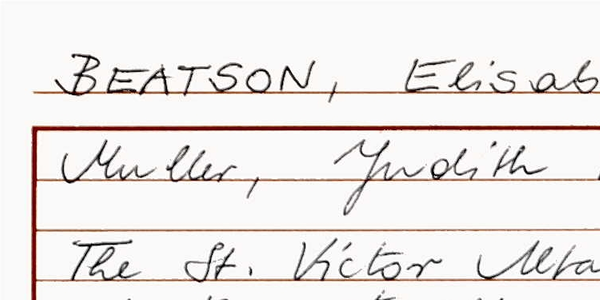 BEATSON, Elisab
Muller, Judith
The St. Victor Alta